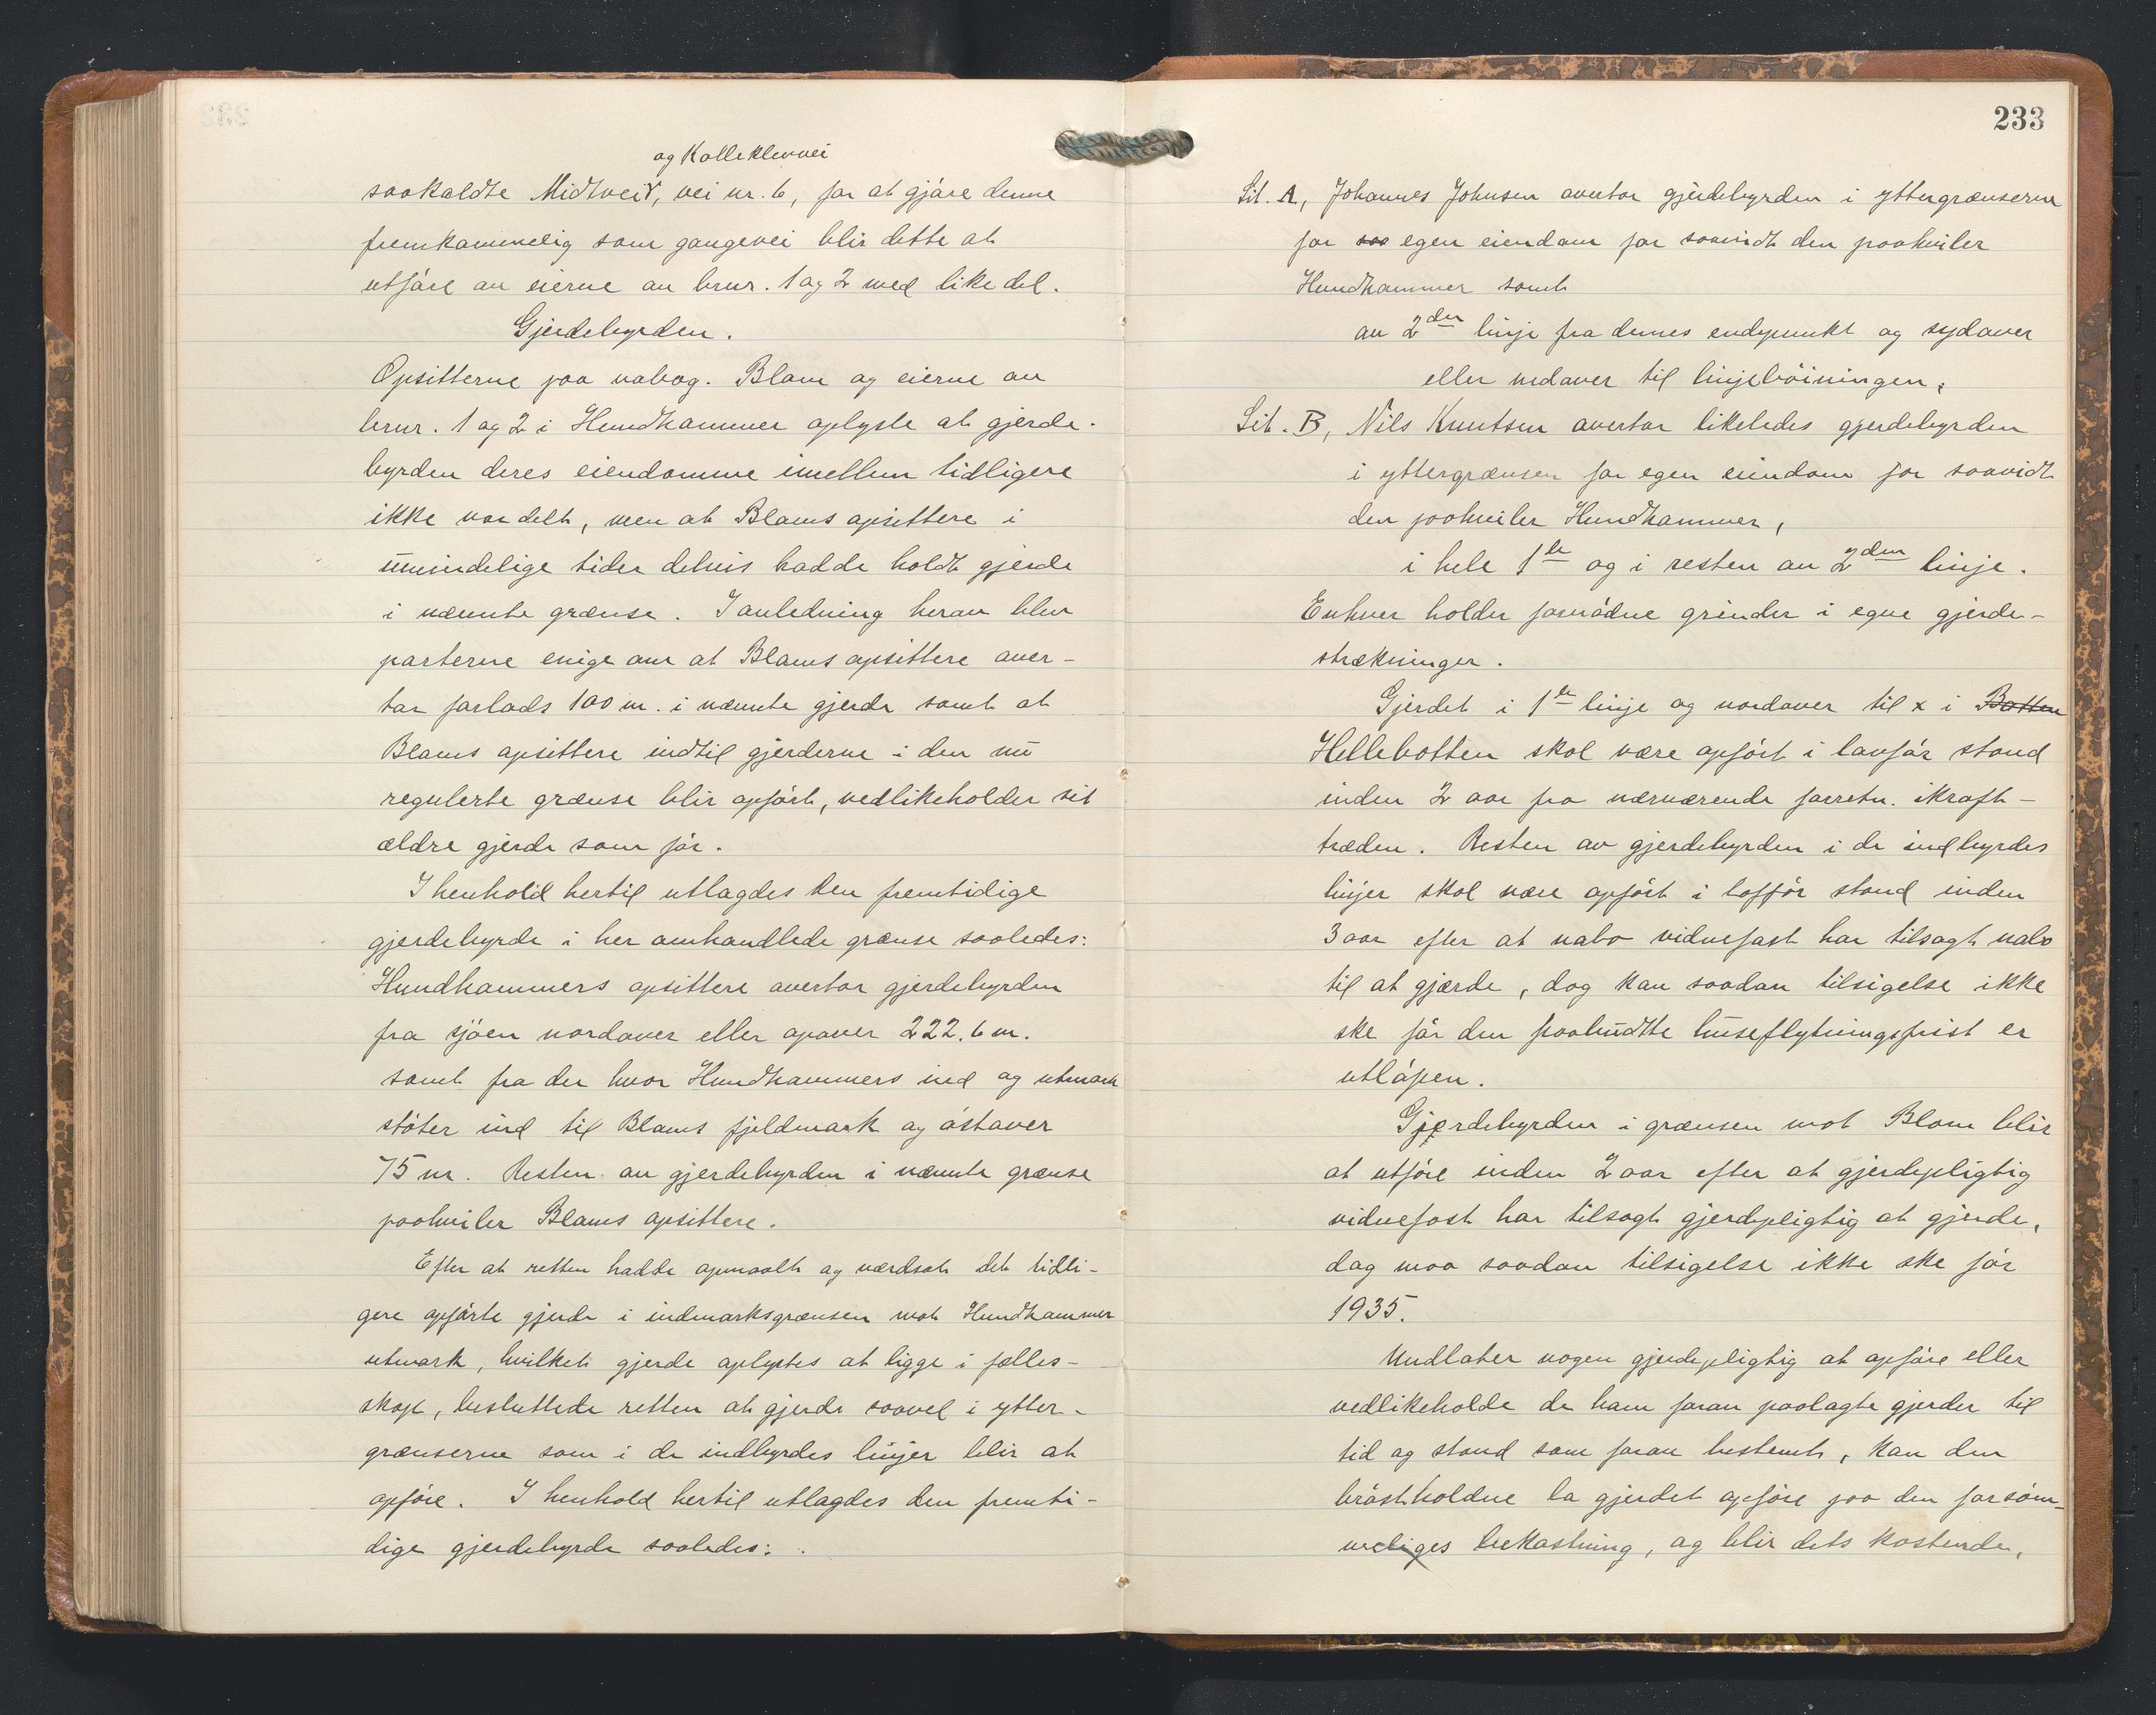 og Kolleklevvei
saakaldte Midtvei, vei nr. 6, for at gjøre denne
fremkommelig som gangevei blir dette at
utføre av eierne av brnr. 1 og 2 med like del.
Gjerdebyrden.
Opsitterne paa nabog. Blom og eierne av
brnr. 1 og 2 i Hundhammer oplyste at gjerde-
byrden deres eiendomme imellem tidligere
ikke var delt, men at Bloms opsittere i
umindelige tider delvis hadde holdt gjerde
i nævnte grænse. I anledning herav blev
parterne enige om at Bloms opsittere over-
tar forlods 100 m. i nævnte gjerde samt at
Bloms opsittere indtil gjerderne i den nu
regulerte grænse blir opført, vedlikeholder sit
ældre gjerde som før.
I henhold hertil utlagdes den fremtidige
gjerdebyrde i her omhandlede grænse saaledes:
Hundhammers opsittere overtar gjerdebyrden
fra sjøen nordover eller opover 222.6 m.
samt fra der hvor Hundhammers ind og utmark
støter ind til Bloms fjeldmark og østover
75 m. Resten av gjerdebyrden i nævnte grænse
paahviler Bloms opsittere.
Efter at retten hadde opmaalt og værdsat det tidli-
gere opførte gjerde i indmarksgrænsen mot Hundhammer
utmark, hvilket gjerde oplystes at ligge i fælles-
skap, besluttede retten at gjerde saavel i ytter-
grænserne som i de indbyrdes linjer blir at
opføre. I henhold hertil utlagdes den fremti-
dige gjerdebyrde saaledes:
233
Lit. A, Johannes Johnsen overtar gjerdebyrden i yttergrænserne
for saa egen eiendom for saavidt den paahviler
Hundhammer samt
av 2den linje fra dennes endepunkt og sydover
eller nedover til linjebøiningen,
Lit. B, Nils Knutsen overtar likeledes gjerdebyrden
i yttergrænsen for egen eiendom for saavidt
den paahviler Hundhammer,
i hele 1te og i resten av 2den linje.
Enhver holder fornødne grinder i egne gjerde-
strækninger.
Gjerdet i 1te linje og nordover til x i Botten
Hellebotten skal være opført i lovfør stand
inden 2 aar fra nærværende forretn. ikraft-
træden. Resten av gjerdebyrden i de indbyrdes
linjer skal være opført i lovfør stand inden
3 aar efter at nabo vidnefast har tilsagt nabo
til at gjærde, dog kan saadan tilsigelse ikke
ske før den paabudte huseflytningsfrist er
utløpen.
Gjerdebyrden i grænsen mot Blom blir
at utføre inden 2 aar efter at gjerdepligtig
vidnefast har tilsagt gjerdepligtig at gjerde,
dog maa saadan tilsigelse ikke ske før
1935.
Undlater nogen gjerdepligtig at opføre eller
vedlikeholde de ham foran paalagte gjerder til
tid og stand som foran bestemt, kan den
brøstholdne la gjerdet opføre paa den forsøm-
meliges bekostning, og blir dets kostende,